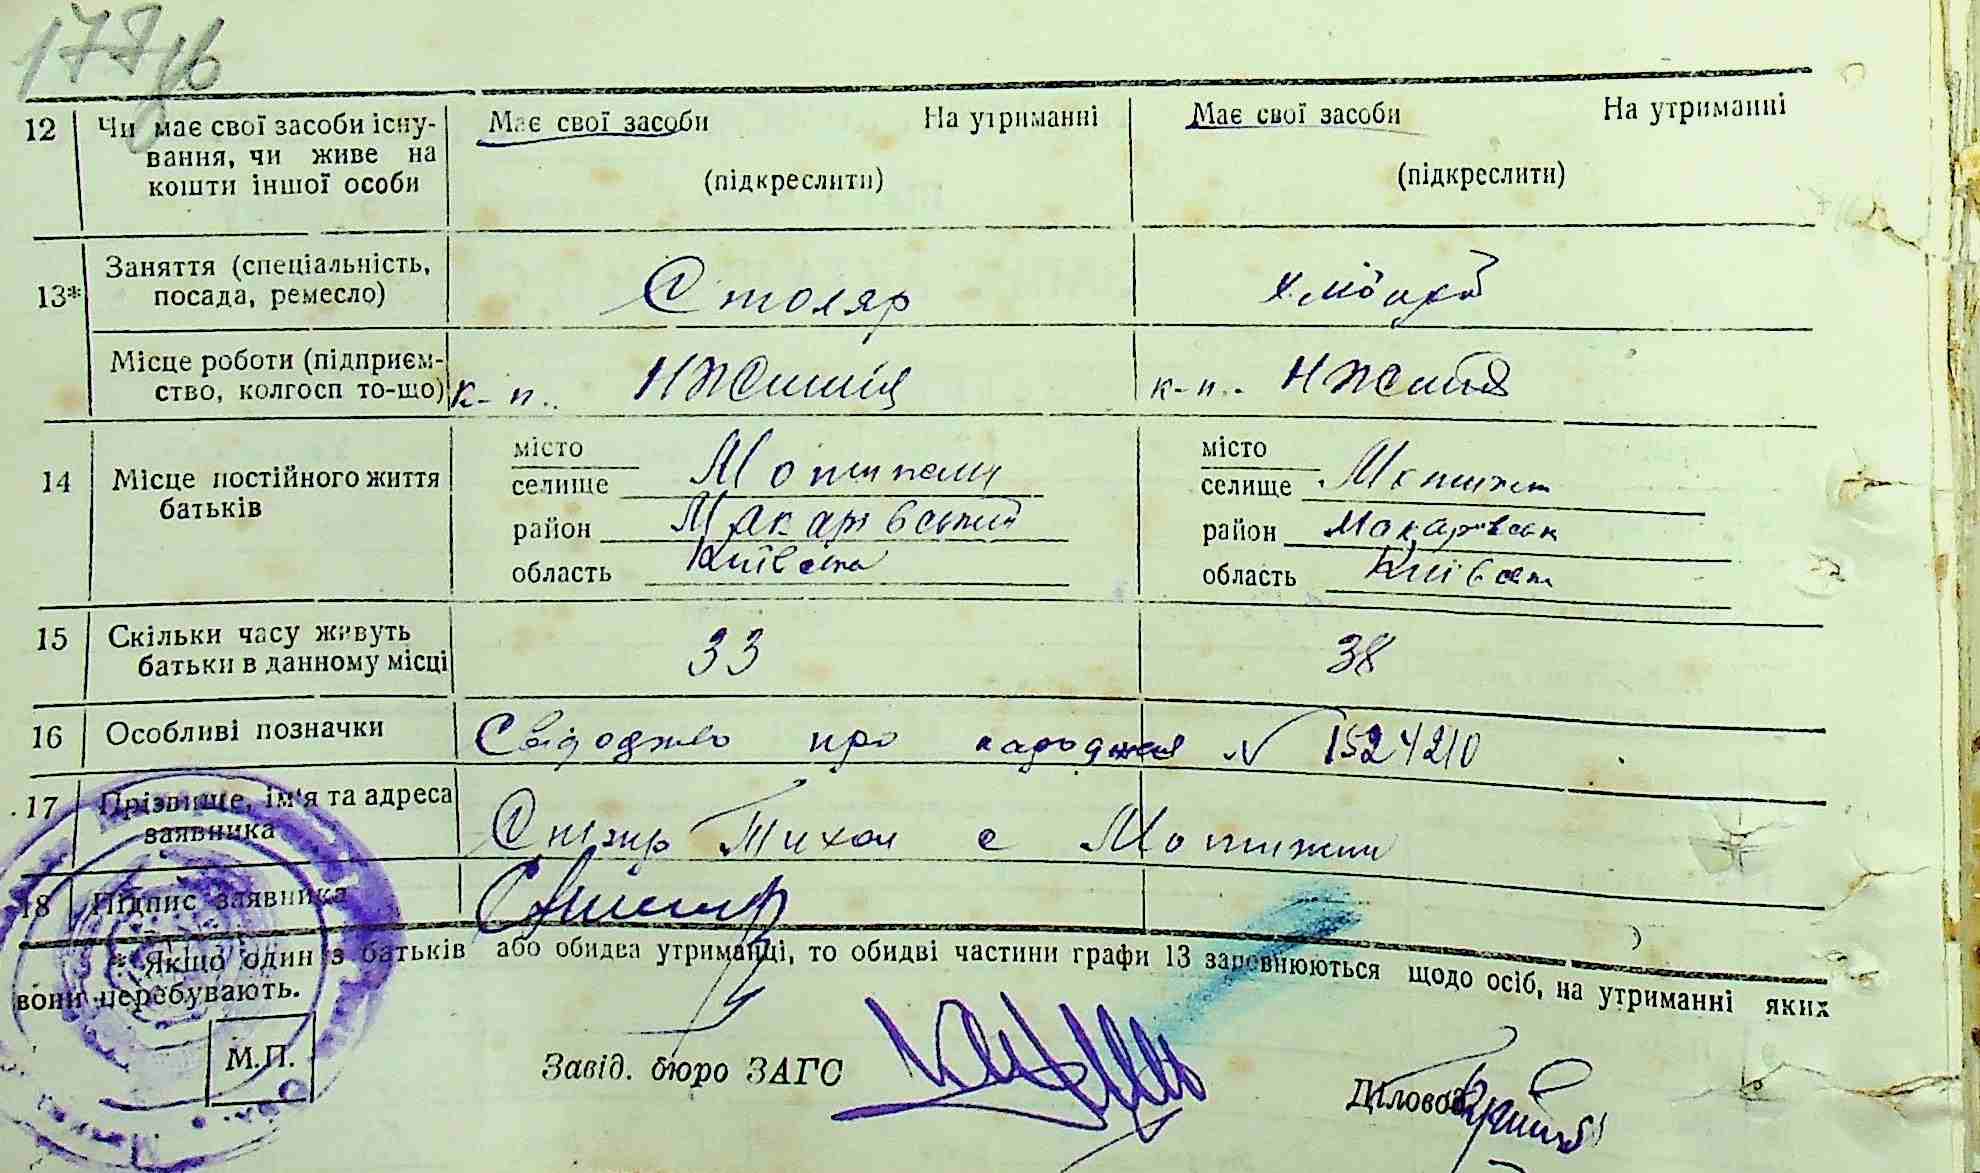 12 Чи має свої засоби існу- Має свої засоби На утриманні Має свої засоби На утриманні
вання, чи живе на
кошти іншої особи (підкреслити) (підкреслити)
13* Заняття (спеціальність,
посада, ремесло) Столяр
Місце роботи (підприєм-
ство, колгосп то-що) к-п.. к-п..
14 Місце постійного життя
батьків
місто місто
селище селище
район Макарівський район Макарівськ
область Київська область Київськ
15 Скільки часу живуть
батьки в данному місці 33 38
16 Особливі позначки про народження № 1524210
17 Прізвище, ім'я та адреса
заявника Тихон с Мотижин
18 Підпис заявника
* Якщо один з батьків або обидва утриманці, то обидві частини графи 13 заповнюються щодо осіб, на утриманні яких
вони перебувають.
М.П.
Завід. бюро ЗАГС
Діловод